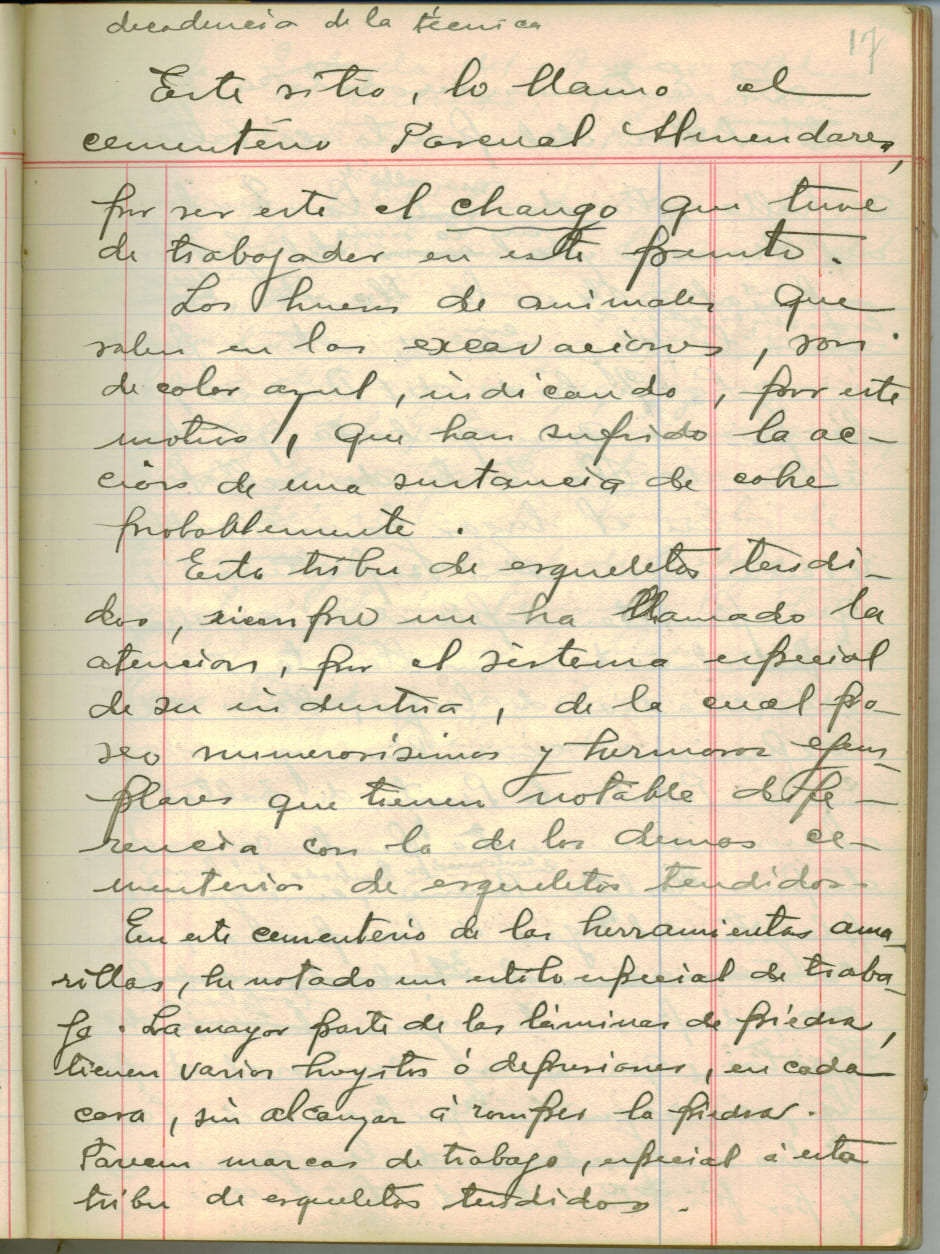 decadencia de la técnica
17
Este sitio, lo llamo el
cementerio Pascual Almendares,
por ser este el chango que tuve
de trabajador en este frente.
Los huesos de animales que
salen en las excavaciones, son
de color azul, indicando, por este
motivo, que han sufrido la ac-
ción de una sustancia de cobre
probablemente.
Esta tribu de esqueletos tendi-
dos, siempre me ha llamado la
atencion, por el sistema especial
de su industria, de la cual po-
seo numerosísimos y hermosos ejem-
plares que tienen notable dife-
rencia con la de los demas ce-
menterios de esqueletos tendidos-
En este cementerio de las herramientas ama-
rillas, he notado un estilo especial de traba-
jo. La mayor parte de las láminas de piedra,
tienen varios hoyitos ó depresiones, en cada
cara, sin alcanzar á romper la piedra.
Parecen marcas de trabajo, especial á esta
tribu de esqueletos tendidos.